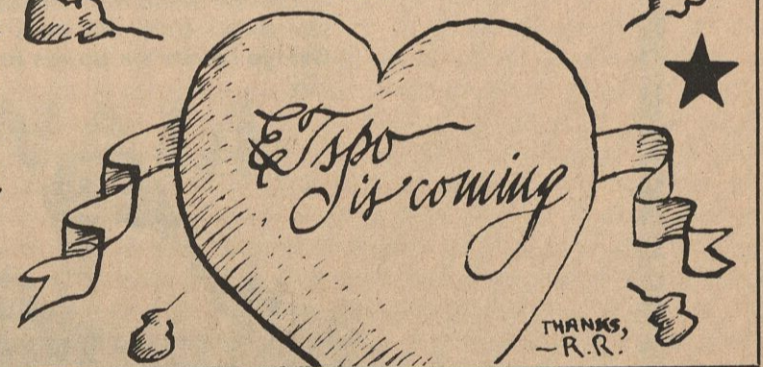 ETspo
is coming
THANKS,
—R.R.